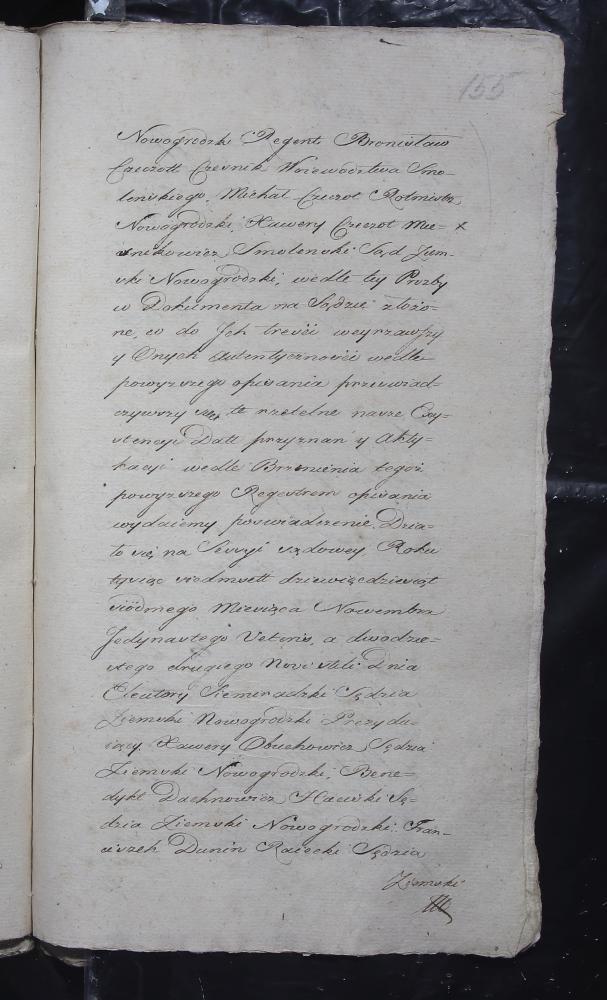 155
Nowogrodzki Regent Bronisław
Czeczott Czesnik Woiewodztwa Smo-
lenskiego, Michał Czeczot Rotmistrz
Nowogrodzki, Xawery Czeczot Mie-
cznikowicz Smolenski Sąd Ziem-
ski Nowogrodzki, wedle tey Prozby
w Dokumenta na Sądzie złożo-
ne, co do Ich treści weyrzawszy
y Onych Autentyczności wedle
powyzszego opisania przeswiad-
czywszy się, te rzetelne nasze Exy-
stencyi Datt przyznań y Akty-
kacyi wedle Brzmienia tegoż
powyzszego Regestrem opisania
wydaiemy poswiadczenie. Dzia-
ło się na Sessyi sądowey Roku
tysiąc siedmsett dziewięcdziesiąt
siódmego Miesiąca Nowembra
Jedynastego Veteris, a dwudzie-
stego drugiego Novi stili Dnia
Eleutery Siemiradzki Sędzia
Ziemski Nowogrodzki Prezydu-
iący, Xawery Obuchowicz Sędzia
Ziemski Nowogrodzki, Bene-
dykt Dachnowicz Hacicki Sę-
dzia Ziemski Nowogrodzki. Fran-
ciszek Dunin Raiecki Sędzia
Ziemski